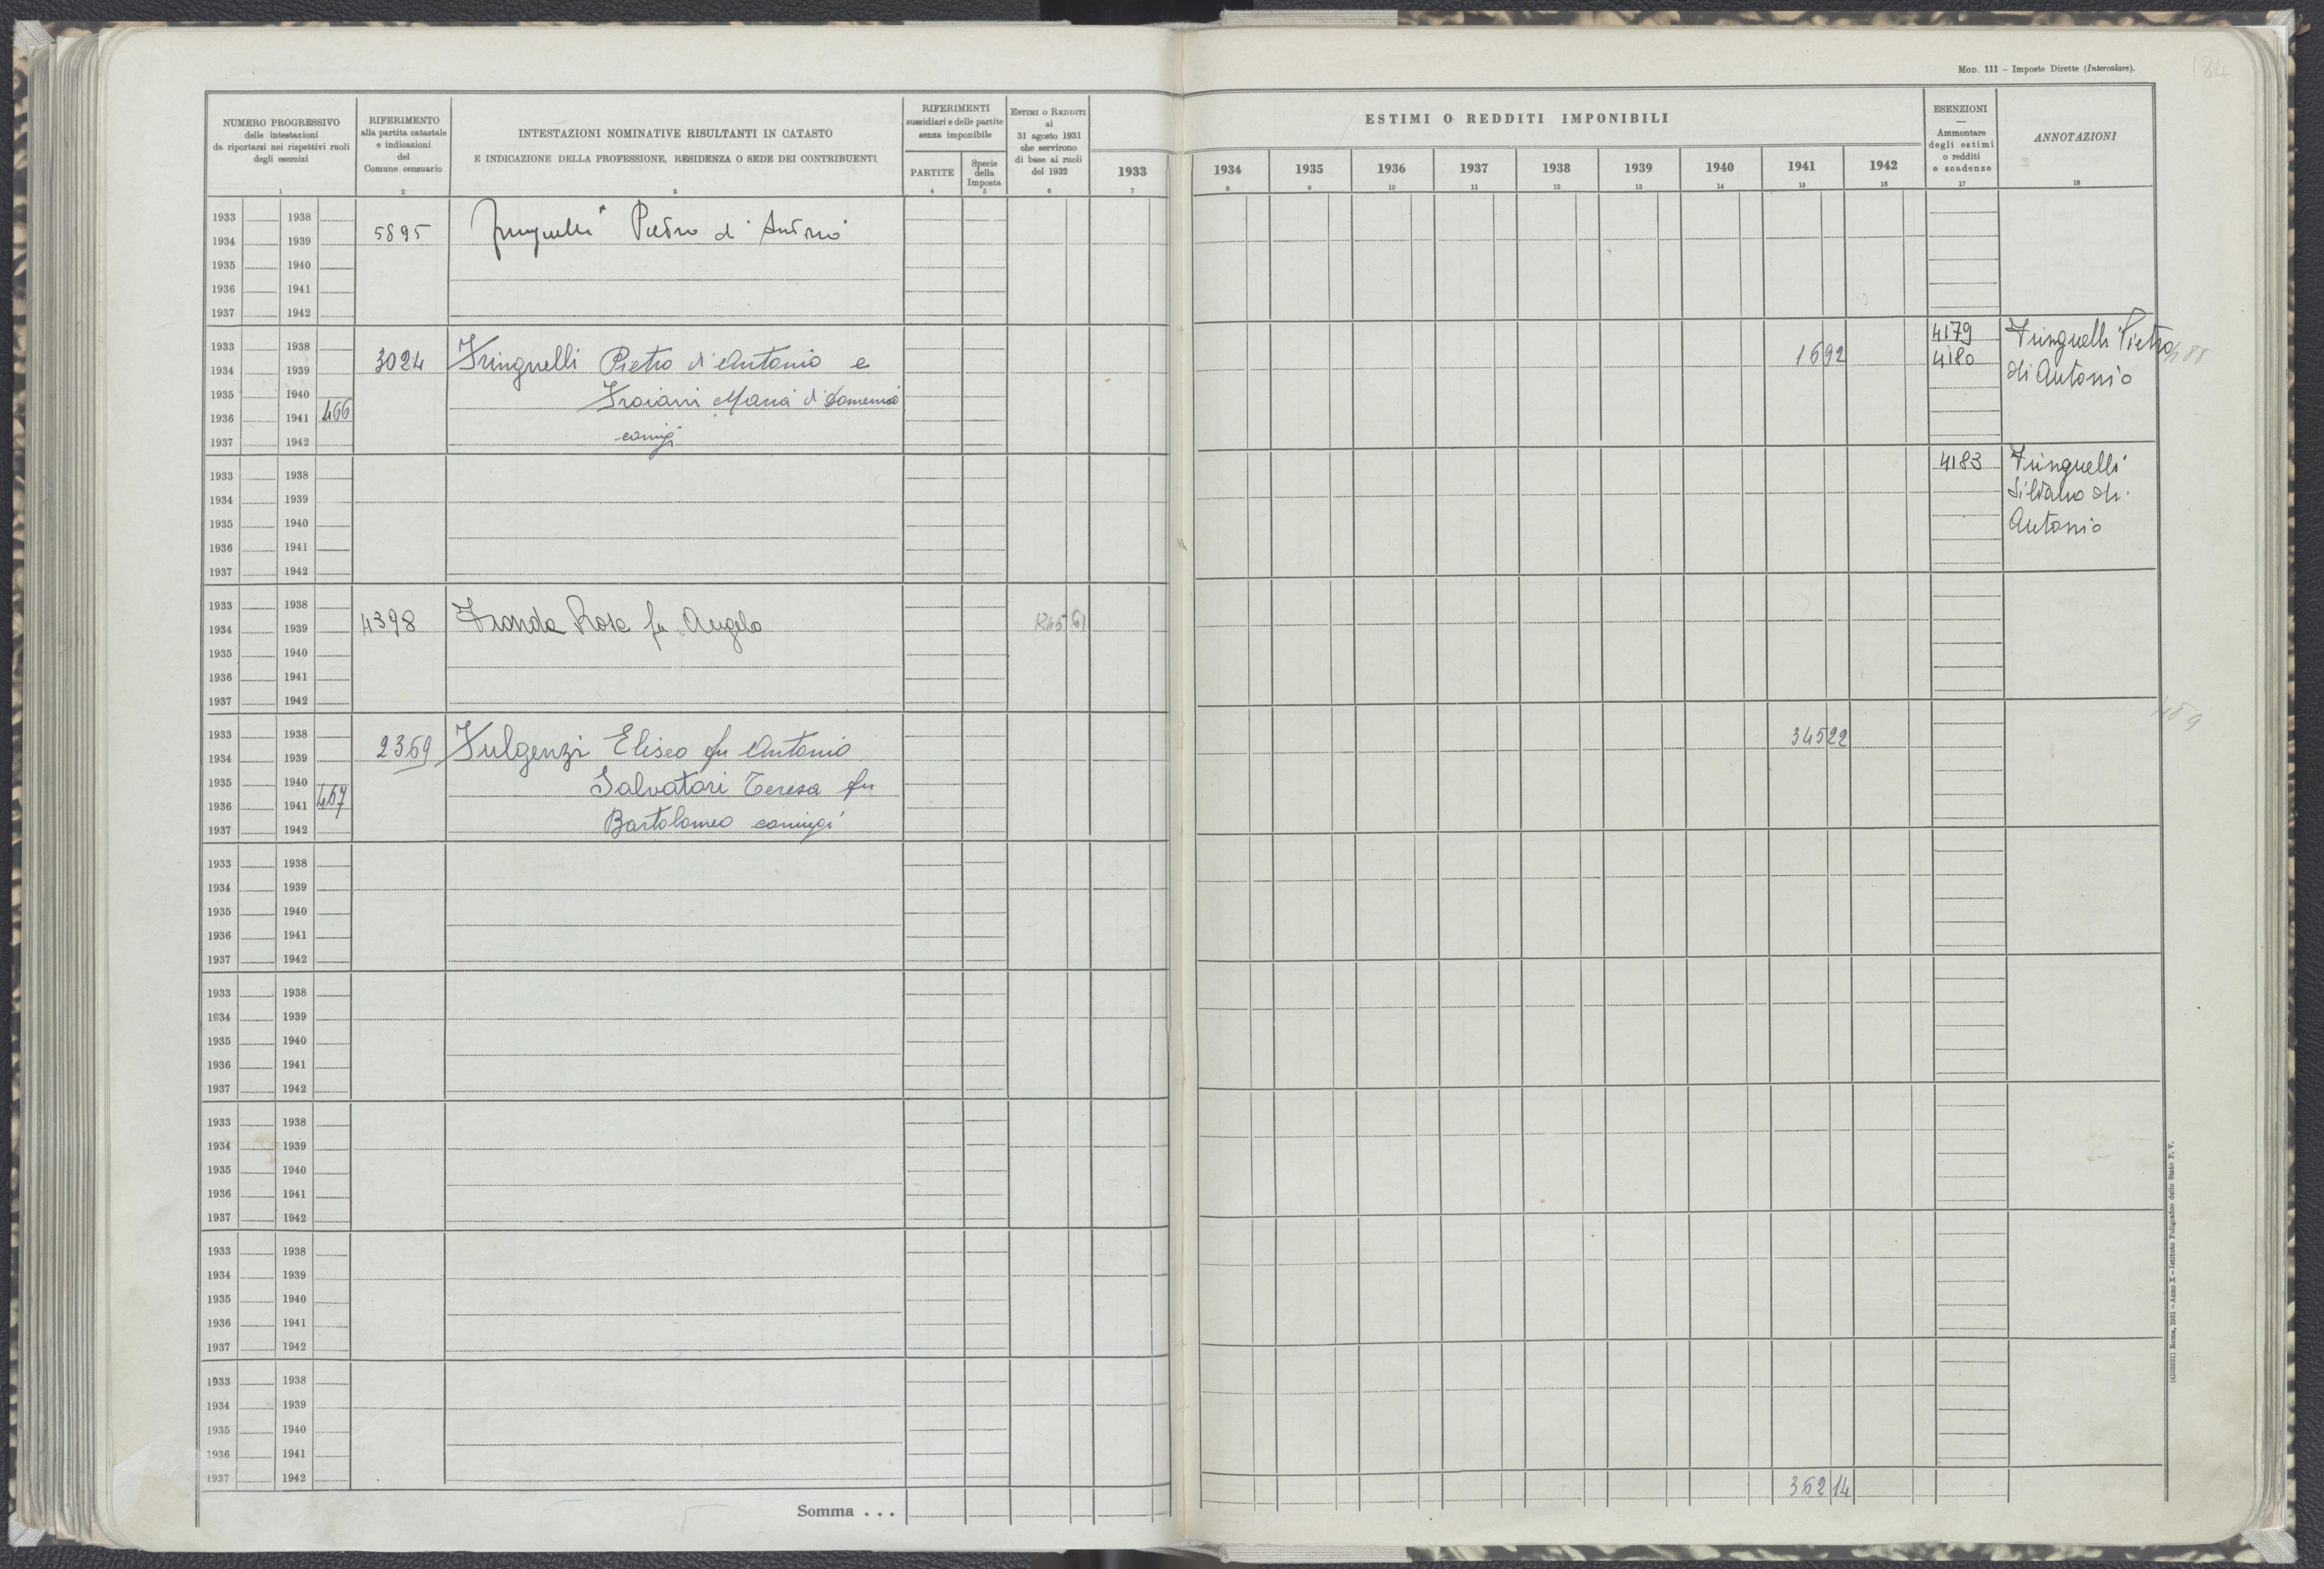 Mod. 111 – Imposte Dirette (Intercalare).
184
NUMERO PROGRESSIVO
delle intestazioni
da riportarsi nei rispettivi ruoli
degli esercizi
1
RIFERIMENTO
alla partita catastale
e indicazioni
del
Comune censuario
2
INTESTAZIONI NOMINATIVE RISULTANTI IN CATASTO
E INDICAZIONE DELLA PROFESSIONE, RESIDENZA O SEDE DEI CONTRIBUENTI
3
RIFERIMENTI
sussidiari e delle partite
senza imponibile
PARTITE
4
Specie
della
Imposta
5
Estimi o Redditi
al
31 agosto 1931
che servirono
di base ai ruoli
del 1932
6
ESTIMI O REDDITI IMPONIBILI
1933 1934 1935 1936 1937 1938 1939 1940 1941 1942
7 8 9 10 11 12 13 14 15 16
ESENZIONI
—
Ammontare
degli estimi
o redditi
e scadenze
17
ANNOTAZIONI
18
1933 1938
1934 1939 5895 Pietro di Antonio
1935 1940
1936 1941
1937 1942
1933 1938 4179 Fringuelli Pietro
1934 1939 3024 Fringuelli Pietro d'Antonio e 16 92 4180 di Antonio
1935 1940 Froiani Maria di Domenico
1936 1941 466
1937 1942 coniugi
1933 1938 4183 Fringuelli
1934 1939 Silvano di
1935 1940 Antonio
1936 1941
1937 1942
1933 1938
1934 1939 4398 Fronda Rosa fu Angelo
1935 1940
1936 1941
1937 1942
1933 1938 2369 Fulgenzi Eliseo fu Antonio 345 22
1934 1939
1935 1940 Salvatori Teresa fu
1936 1941 467
1937 1942 Bartolomeo coniugi
1933 1938
1934 1939
1935 1940
1936 1941
1937 1942
1933 1938
1934 1939
1935 1940
1936 1941
1937 1942
1933 1938
1934 1939
1935 1940
1936 1941
1937 1942
1933 1938
1934 1939
1935 1940
1936 1941
1937 1942
1933 1938
1934 1939
1935 1940
1936 1941
1937 1942
Somma . . . 362 14
(4103531) Roma, 1931 – Anno X – Istituto Poligrafico dello Stato P. V.